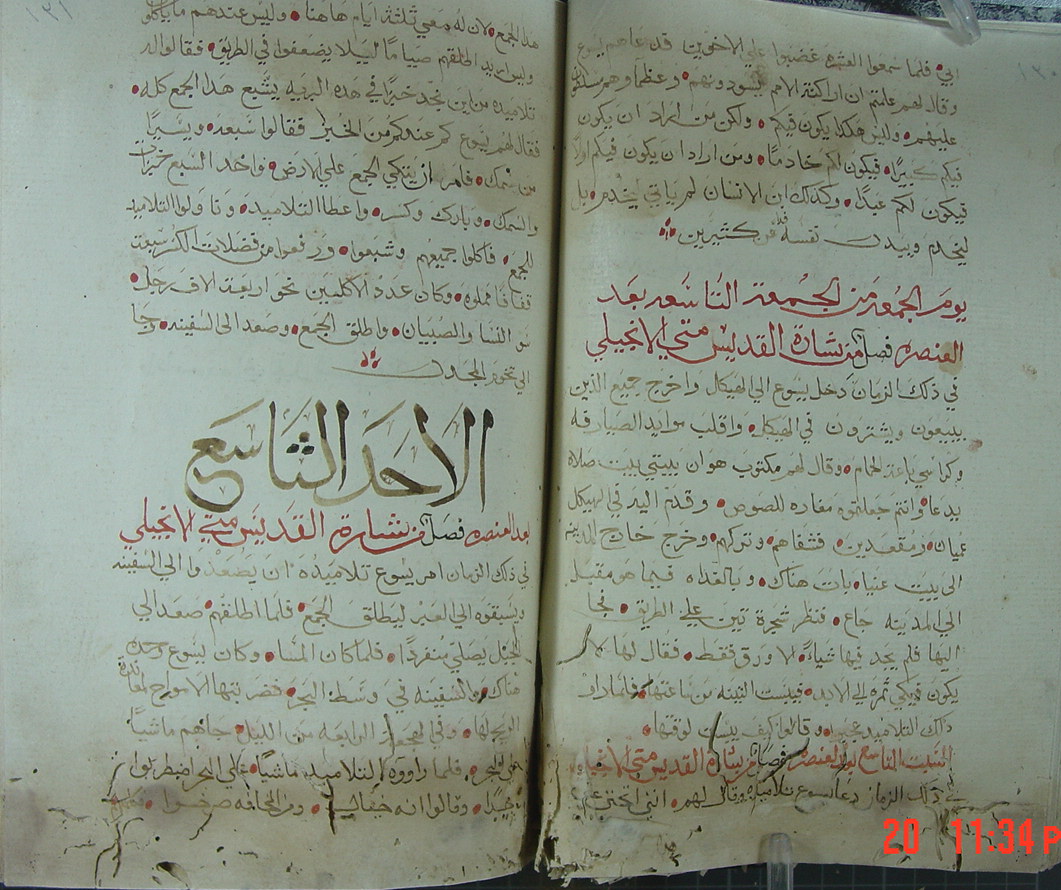 ابي فلما سمعوا العشره غضبوا علي الاخوين فدعاهم يسوع
وقال لهم علمتم ان اراكنة الامم يسودونهم وعظماوهم مسلطين
عليهم وليس هكذا يكون فيكم ولكن من اراد ان يكون
فيكم كبيرًا فيكون لكم خادمًا ومن اراد ان يكون فيكم اولا
فيكون لكم عبدًا وكذلك ابن الانسان لم ياتي ليخدم بل
ليخدم ويبدل نفسه عن كثيرين
يوم الجمعه من الجمعة التاسعه بعد
العنصره فصل من بشارة القديس متي الانجيلي
في ذلك الزمان دخل يسوع الي الهيكل واخرج جميع الذين
يبيعون ويشترون في الهيكل واقلب موايد الصيارفه
وكراسي باعة الحمام وقال لهم مكتوب هو ان بيتي بيت صلاه
يدعا وانتم جعلتموه مغاره للصوص وقدم اليه في الهيكل
عميان ومقعدين فشفاهم وتركهم وخرج خارج المدينه
الى بيت عنيا بات هناك وبالغداه فيما هو مقبل
الي المدينه جاع فنظر شجرة تين علي الطريق فجا
اليها فلم يجد فيها شياء الا ورق فقط فقال لها لا
يكون فيكي ثمره الي الابد فيبست التينه من ساعتها فلما راو
ذلك التلاميد عجبو وقالوا كيف يبست لوقتها
السبت التاسع بعد العنصره فصل من بشارة القديس متي الانجيلي
في ذلك الزمان دعا يسوع تلاميذه وقال لهم انني اتحنن علي
١٣١
هذا الجمع لان له معي ثلثة ايام هاهنا وليس عندهم ما ياكلو
وليس اريد اطلقهم صيامًا ليلا يضعفوا في الطريق فقالوا له
تلاميذه من اين نجد خبزًا في هذه البريه يشبع هذا الجمع كله
فقال لهم يسوع كم عندكم من الخبز فقالوا سبعه ويسيرًا
من سمك فامر ان يتكي الجمع علي الارض واخد السبع خبزات
والسمك وبارك وكسر واعطا التلاميد وناولوا التلاميد
للجمع فاكلوا جميعهم وشبعوا ورفعوا من فضلات الكسر سبعة
قفافًا مملوه وكان عدد الاكليين نحو اربعة الاف رجل
سو النسا والصبيان واطلق الجمع وصعد الى السفينه وجا
الي تخوم المجدل
الاحد التاسع
بعد العنصره فصل من بشارة القديس متي الانجيلي
في ذلك الزمان امر يسوع تلاميذه ان يصعدوا الي السفينه
ويسبقوه الي العبر ليطلق الجمع فلما اطلقهم صعد الي
الجبل يصلي منفردًا فلما كان المسا وكان يسوع وحده
هناك والسفينه في وسط البحر فضربتها الامواج لمعاندة
الريح لها وفي الهجعه الرابعه من الليل جاهم ماشيًا
على البحر فلما راووه التلاميد ماشيًا علي البحر اضطربوا
جدا وقالوا انه خيال ومن المخافه صرخوا
20 11:34 P